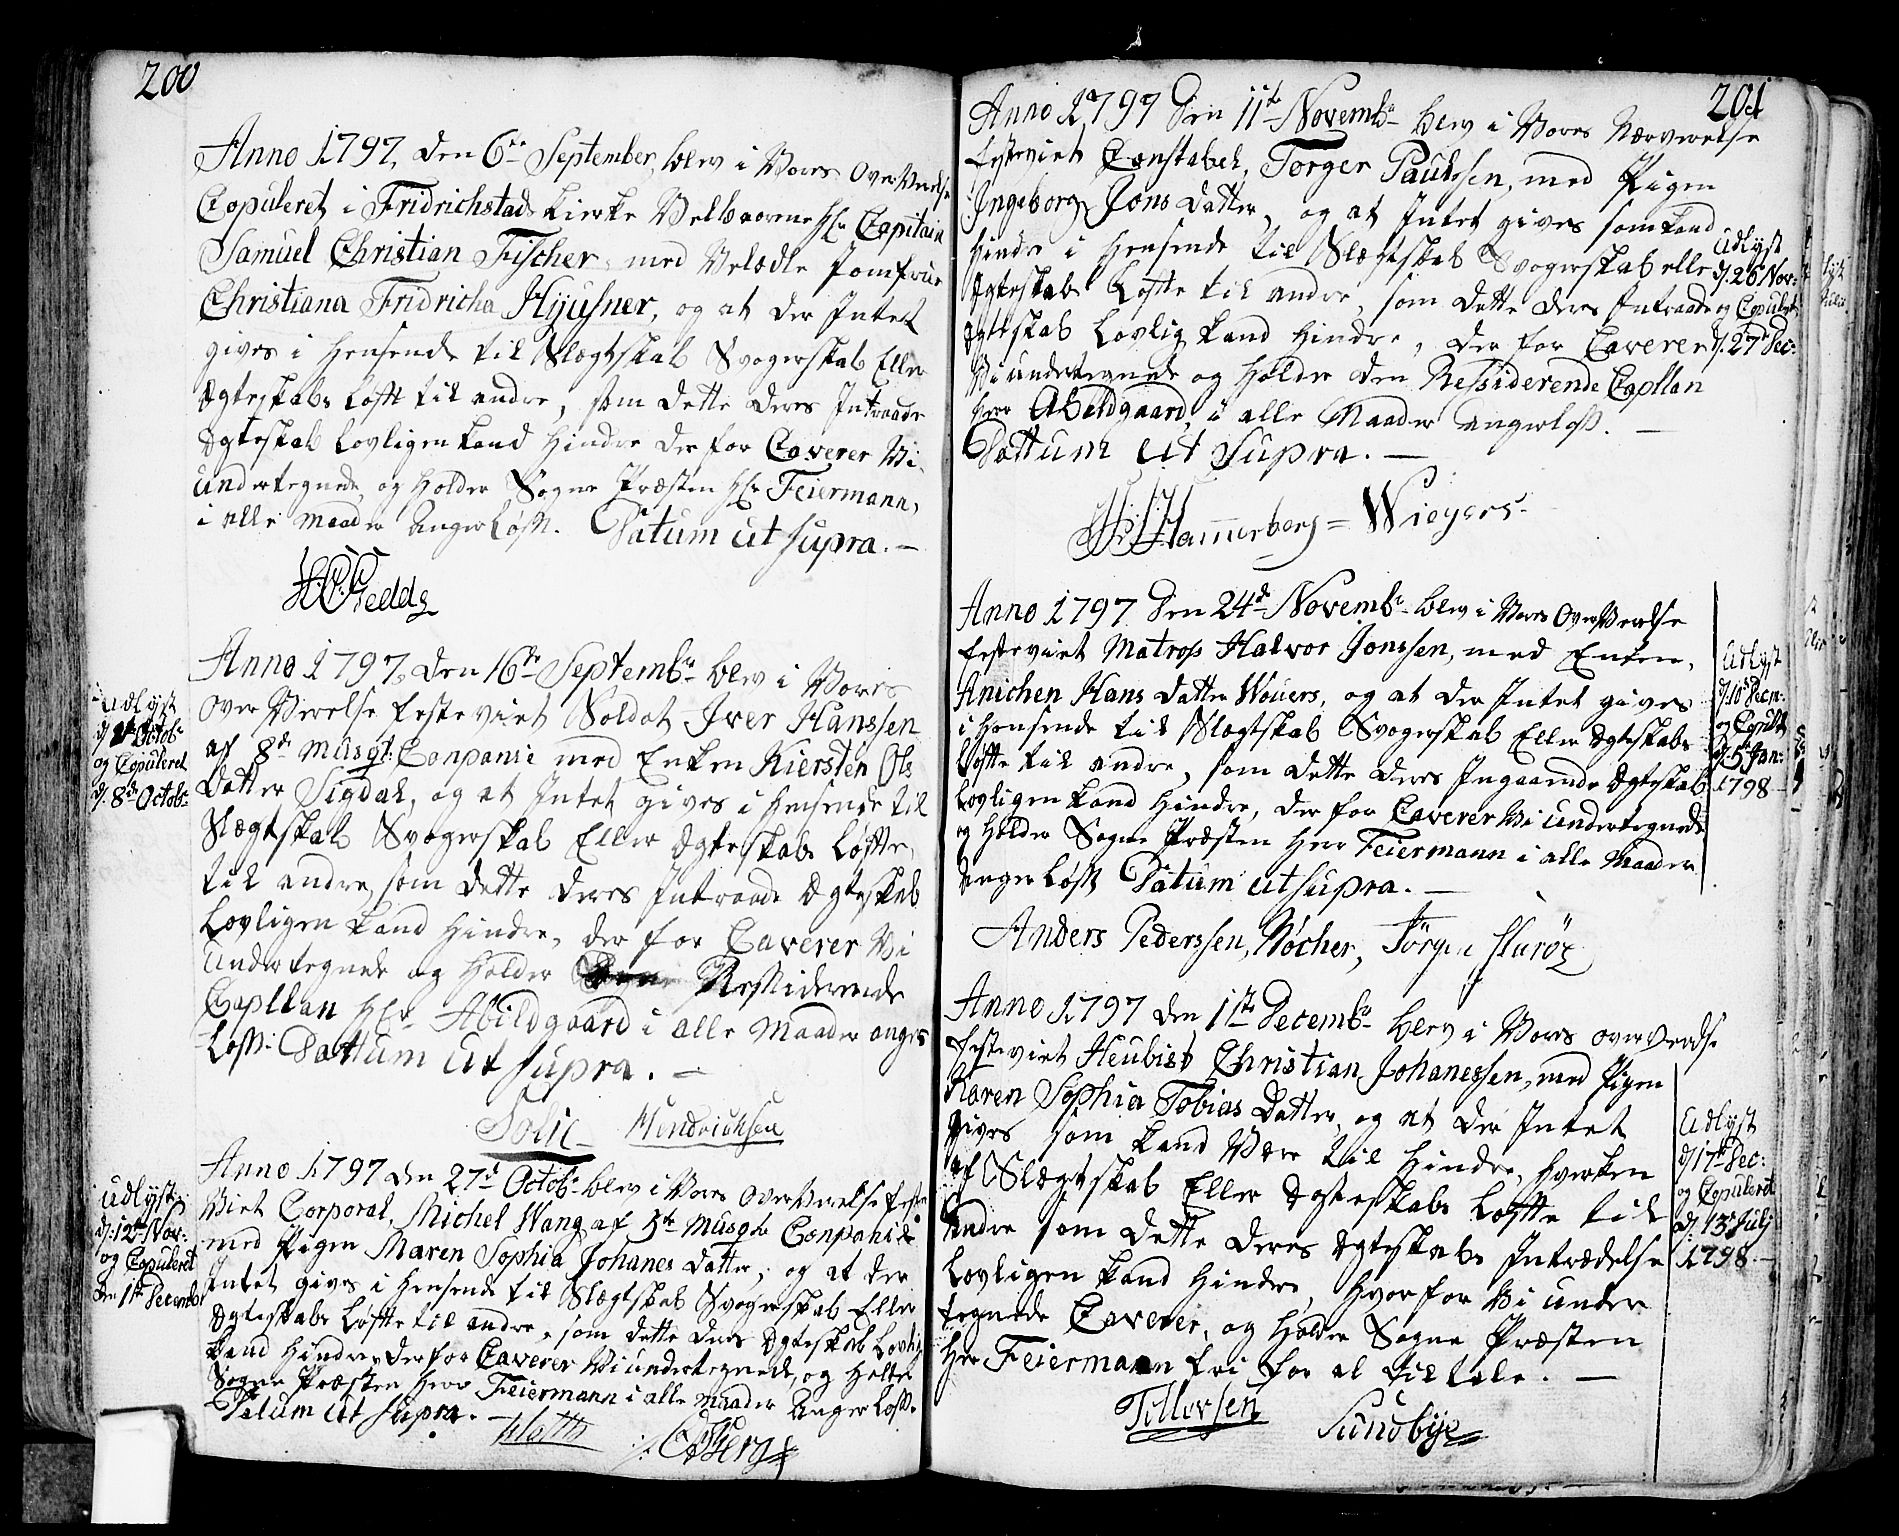 200
Anno 1797, den 6te September, blev i Vores OverVærelse
Copuleret i Fridrichstads Kierke Velbaarne Hr Capitain
Samuel Christian Fischer, med Velædle Jomfrue
Christiana Fridricha Hyusner, og at der Intet
gives i Hensende til Slægtskab Svogerskab Eller
Ægteskabs Løfte til andre, som dette deres Intraade
Ægteskab Lovligen kand Hindre der for Caverer Vi
undertegnede, og Holder Sogne Præsten Hr Feiermann,
i alle maader Angerløss. Datum ut supra. —
Anno 1797, den 16de Septembr blev i Vores
Over Værelse festeviet Soldat Iver Hanssen
af 8de Musqt: Conpanie med Enken Kiersten Ols
Datter Sigdal, og at Intet gives i Hensende til
Slægtskab Svogerskab Eller Ægteskabs Løfte,
til andre, som dette deres Intraade Ægteskab
Lovligen kand Hindre, der for Caverer Vi
undertegnede og Holder Ressiderende
Capllan Hr Abildgaard i alle Maader anger
Løss: Dattum ut supra. —
Udlyst
og Copuleret
d. 8de Octobr
Solie Hendrichsen
Anno 1797 den 27d Octobr blev i Vores OverVærelse feste
Viet Corporal, Michel Wang af 5te Musqt Conpanie
med Pigen Maren Sophia Johanes Datter, og at der
Intet gives i Hensende til Slægtskab Svogerskab Eller
Ægteskabs Løfte til andre, som dette deres Ægteskab Lovlig
kand Hindre, derfor Caverer Vi undertegnede, og Holder
Sogne Præsten Herr Feiermann i alle maader Angerløss.
Datum ut supra. —
Udlyst
d: 12te Nov:
og Copuleret
den 1ste Decembr
201
Anno 1797 den 11te Novembr blev i Vores Nærværelse
festeviet Constabel, Torger Paulssen, med Pigen
Ingeborg Jons Datter, og at Intet gives som kand
Hindre i Hensende til Slægtskab Svogerskab elle
Ægteskabs Løfte til andre, som dette deres Intraade
Ægteskab Lovlig kand Hindre, der for Caverer
Vi undertegnede og Holder den Ressiderende Capllan
Herr Abeldgaard, i alle Maader angerløss. —
Dattum ut supra. —
Udlyst
d. 26 Nov:
og Copuleret
d. 27d Dec:
Hammerberg = Wieyers
Anno 1797 den 24de Novembr blev i Vores OverVærelse
festeviet Matros Halvor Jonssen, med Enken,
Anichen Hans Datter Wouers, og at der Intet gives
i Hensende til Slægtskab Svogerskab Eller Ægteskabs
Løfte til andre, som dette deres Ingaaende Ægteskab
Lovligen kand Hindre, der for Caverer Vi undertegnede
og Holder Sogne Præsten Herr Feiermann i alle Maader
Angerløss Datum ut supra. —
Udlyst
d. 10de Decm:
og Copult
d. 5te Jan:
1798 —
Anders Pederssen, Nøcher, Jørgen
Anno 1797 den 1ste Decembr blev i Vores overværelse
festeviet Heubist Christian Johanessen, med Pigen
Karen Sophia Tobias Datter, og at der Intet
gives som kand Være til Hindre, hverken
af Slægtskab Eller Ægteskabs Løfte til
Andre som dette deres Ægteskabs Intrædelse
Lovligen kand Hindre, hvorfor Vi under
tegnede Caverer, og Holder Sogne Præsten
Herr Feiermann fri for al tiltale. —
Udlyst
d. 17de Dec:
og Copuleret
d. 13d Julj
1798. —
Tollevsen Sundbye